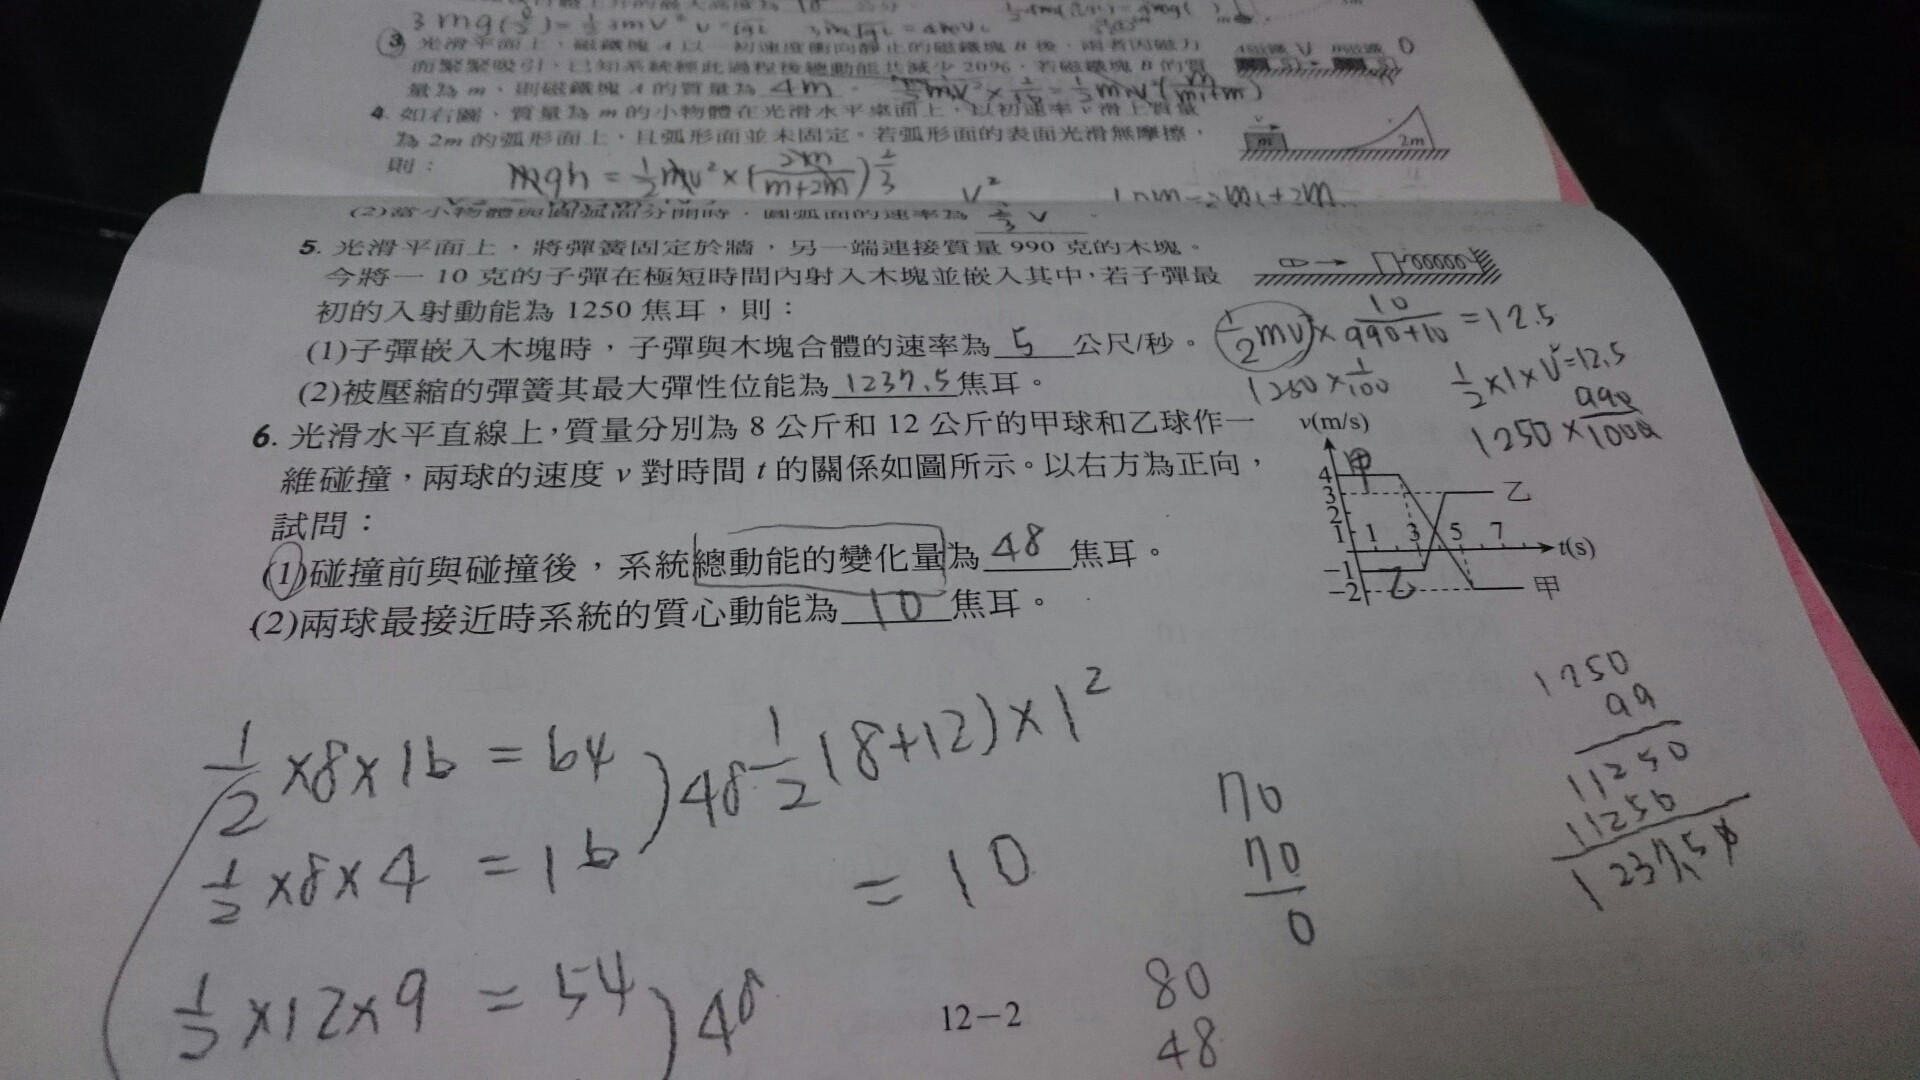 3mg(
3 光滑平面上,磁鐵塊 A 以一初速度衝向靜止的磁鐵塊 B 後,兩者因磁力
而緊緊吸引,已知系統經此過程後總動能共減少 20%,若磁鐵塊 B 的質
量為 m,則磁鐵塊 A 的質量為 4m 。
V 0
4. 如右圖,質量為 m 的小物體在光滑水平桌面上,以初速率 v 滑上質量
為 2m 的弧形面上,且弧形面並未固定。若弧形面的表面光滑無摩擦,
則:
mgh = 1/2 mv² × (2m/(m+2m)) 2/3
v m 2m
(2)當小物體與圓弧面分開時,圓弧面的速率為 2/3 v 。
5. 光滑平面上,將彈簧固定於牆,另一端連接質量 990 克的木塊。
今將一 10 克的子彈在極短時間內射入木塊並嵌入其中,若子彈最
初的入射動能為 1250 焦耳,則:
(1)子彈嵌入木塊時,子彈與木塊合體的速率為 5 公尺/秒。
(2)被壓縮的彈簧其最大彈性位能為 1237.5 焦耳。
1/2 mv² × 10/(990+10) = 12.5
1250 × 1/100
1/2 × 1 × V² = 12.5
1250 × 990/1000
6. 光滑水平直線上,質量分別為 8 公斤和 12 公斤的甲球和乙球作一
維碰撞,兩球的速度 v 對時間 t 的關係如圖所示。以右方為正向,
試問:
(1)碰撞前與碰撞後,系統總動能的變化量為 48 焦耳。
(2)兩球最接近時系統的質心動能為 10 焦耳。
v(m/s)
4 甲
3 乙
2
1 1 3 5 7 t(s)
-1
-2 乙 甲
1/2 × 8 × 16 = 64
48
1/2 × 8 × 4 = 16
1/2 (8+12) × 1²
= 10
1/2 × 12 × 9 = 54
48
70
70
0
80
48
1250
99
11250
11250
1237.50
12-2